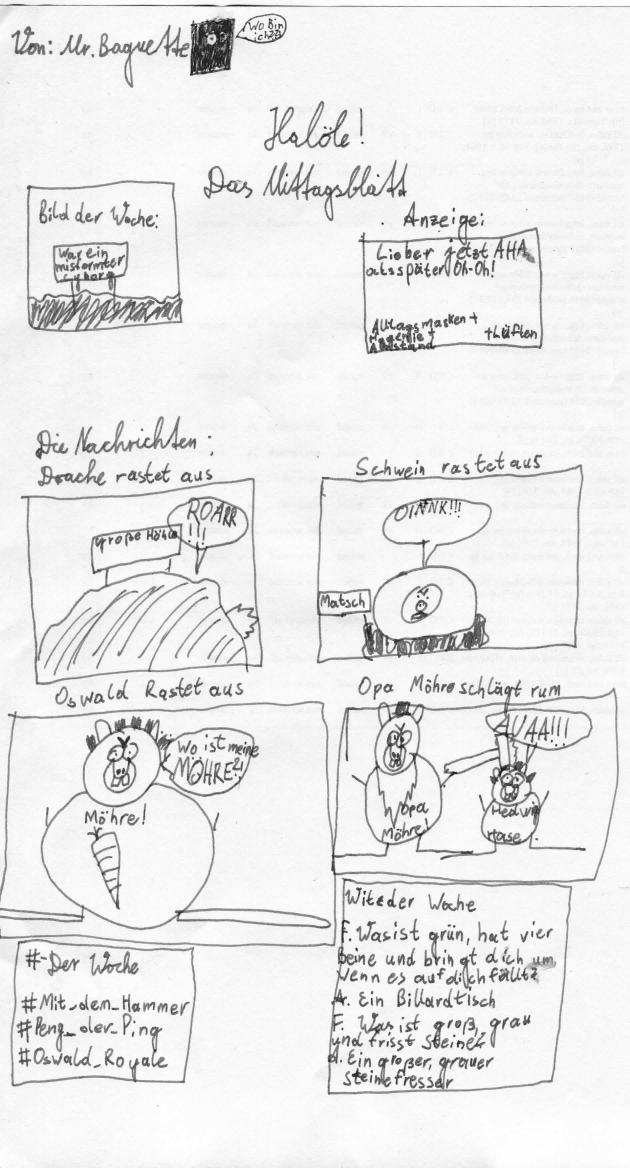 Von: Mr. Baguette
Wo Bin
ich??
Halöle!
Das Mittagsblatt
Bild der Woche:
War ein
misformter
Cyborg
Anzeige:
Lieber jetzt AHA
als später Oh-Oh!
Alltagsmasken +
Hygiene +
Abstand
+Lüften
Die Nachrichten:
Drache rastet aus
ROARR
!!!
große Höhle
Schwein rastet aus
OINNK!!!
Matsch
Oswald Rastet aus
Wo ist meine
MÖHRE?!
Möhre!
Opa Möhre schlägt rum
AUAA!!!
Opa
Möhre!
Hedwig
Hase
#-Der Woche
#Mit_dem_Hammer
#Peng_der_Ping
#Oswald_Royale
Witz der Woche
F. Was ist grün, hat vier
Beine und bringt dich um,
wenn es auf dich fällt?
A. Ein Billardtisch
F. Was ist groß, grau
und frisst Steine?
A. Ein großer, grauer
steinefresser